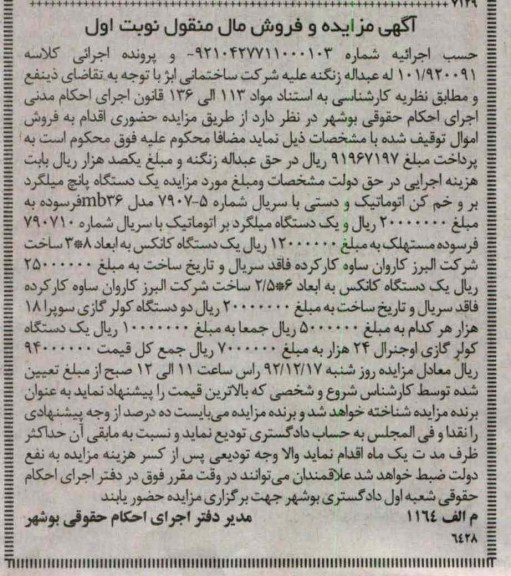 ۷۱۳۹
آگهی مزایده و فروش مال منقول نوبت اول
حسب اجرائیه شماره ۹۲۱۰۴۲۷۷۱۱۰۰۰۱۰۳- و پرونده اجرائی کلاسه
۱۰۱/۹۲۰۰۹۱ له عبداله زنگنه علیه شرکت ساختمانی ابژ با توجه به تقاضای ذینفع
و مطابق نظریه کارشناسی به استناد مواد ۱۱۳ الی ۱۳۶ قانون اجرای احکام مدنی
اجرای احکام حقوقی بوشهر در نظر دارد از طریق مزایده حضوری اقدام به فروش
اموال توقیف شده با مشخصات ذیل نماید مضافا محکوم علیه فوق محکوم است به
پرداخت مبلغ ۹۱۹۶۷۱۹۷ ریال در حق عبداله زنگنه و مبلغ یکصد هزار ریال بابت
هزینه اجرایی در حق دولت مشخصات ومبلغ مورد مزایده یک دستگاه پانچ میلگرد
بر و خم کن اتوماتیک و دستی با سریال شماره ۵-۷۹۰۷ مدل mb۳۶فرسوده به
مبلغ ۲۰۰۰۰۰۰۰ ریال و یک دستگاه میلگرد بر اتوماتیک با سریال شماره ۷۹۰۷۱۰
فرسوده مستهلک به مبلغ ۱۲۰۰۰۰۰۰ ریال یک دستگاه کانکس به ابعاد ۸*۳ ساخت
شرکت البرز کاروان ساوه کارکرده فاقد سریال و تاریخ ساخت به مبلغ ۲۵۰۰۰۰۰۰
ریال یک دستگاه کانکس به ابعاد ۶*۲/۵ ساخت شرکت البرز کاروان ساوه کارکرده
فاقد سریال و تاریخ ساخت به مبلغ ۲۰۰۰۰۰۰۰ ریال دو دستگاه کولر گازی سوپرا ۱۸
هزار هر کدام به مبلغ ۵۰۰۰۰۰۰ ریال جمعا به مبلغ ۱۰۰۰۰۰۰۰ ریال یک دستگاه
کولر گازی اوجنرال ۲۴ هزار به مبلغ ۷۰۰۰۰۰۰ ریال جمع کل قیمت ۹۴۰۰۰۰۰۰
ریال معادل مزایده روز شنبه ۹۲/۱۲/۱۷ راس ساعت ۱۱ الی ۱۲ صبح از مبلغ تعیین
شده توسط کارشناس شروع و شخصی که بالاترین قیمت را پیشنهاد نماید به عنوان
برنده مزایده شناخته خواهد شد و برنده مزایده می‌بایست ده درصد از وجه پیشنهادی
را نقدا و فی المجلس به حساب دادگستری تودیع نماید و نسبت به مابقی آن حداکثر
ظرف مد ت یک ماه اقدام نماید والا وجه تودیعی پس از کسر هزینه مزایده به نفع
دولت ضبط خواهد شد علاقمندان می‌توانند در وقت مقرر فوق در دفتر اجرای احکام
حقوقی شعبه اول دادگستری بوشهر جهت برگزاری مزایده حضور یابند
م الف ۱۱۶۴ مدیر دفتر اجرای احکام حقوقی بوشهر
۶۴۲۸